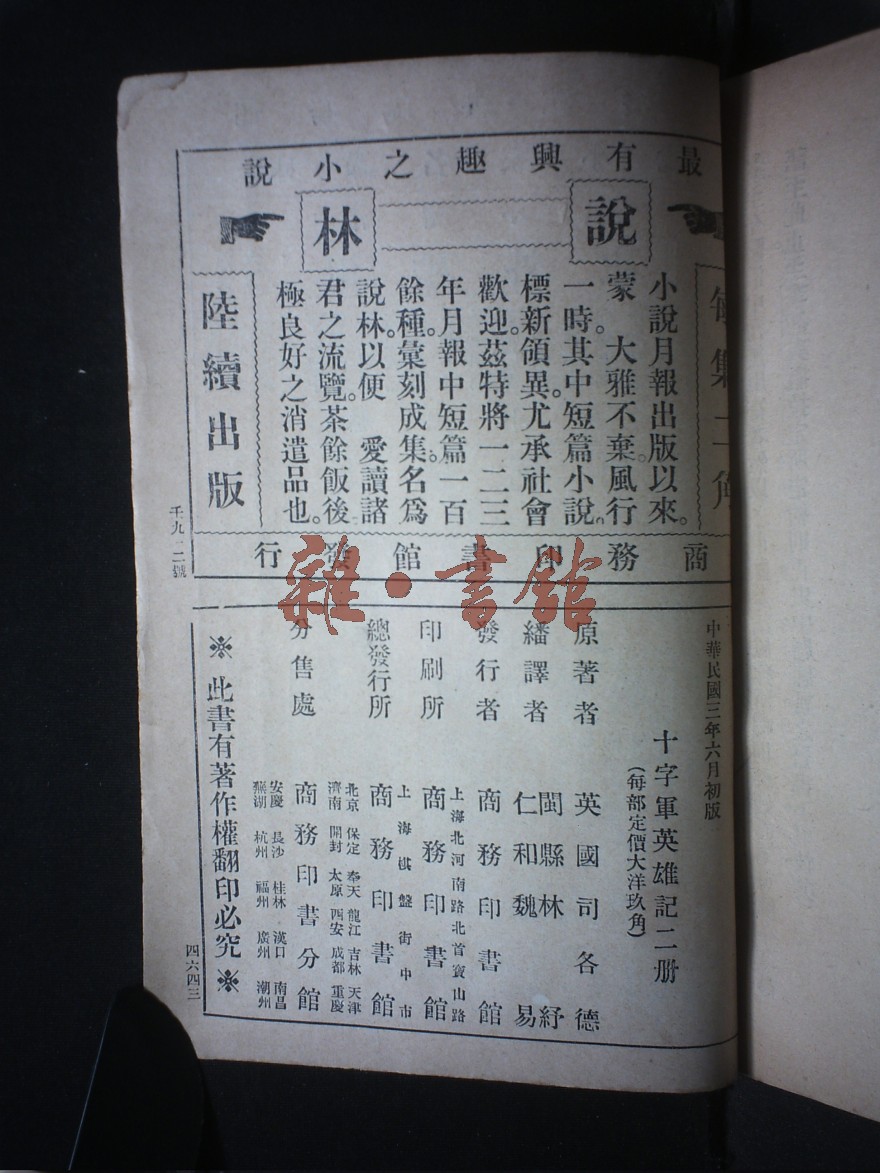 最有興趣之小說
說林
每集二角
小說月報出版以來。
蒙　大雅不棄。風行
一時。其中短篇小說。
標新領異。尤承社會
歡迎。茲特將一二三
年月報中短篇一百
餘種。彙刻成集。名爲
說林。以便　愛讀諸
君之流覽。茶餘飯後
極良好之消遣品也。
陸續出版
商務印書館發行
千九二號
中華民國三年六月初版
十字軍英雄記二册
（每部定價大洋玖角）
原著者　英國司各德
繙譯者　閩縣林紓
仁和魏易
發行者　商務印書館
上海北河南路北首寶山路
印刷所　商務印書館
上海棋盤街中市
總發行所　商務印書館
北京　保定　奉天　龍江　吉林　天津
濟南　開封　太原　西安　成都　重慶
分售處　商務印書分館
安慶　長沙　桂林　漢口　南昌
蕪湖　杭州　福州　廣州　潮州
※此書有著作權翻印必究※
四六四三
雜·書館